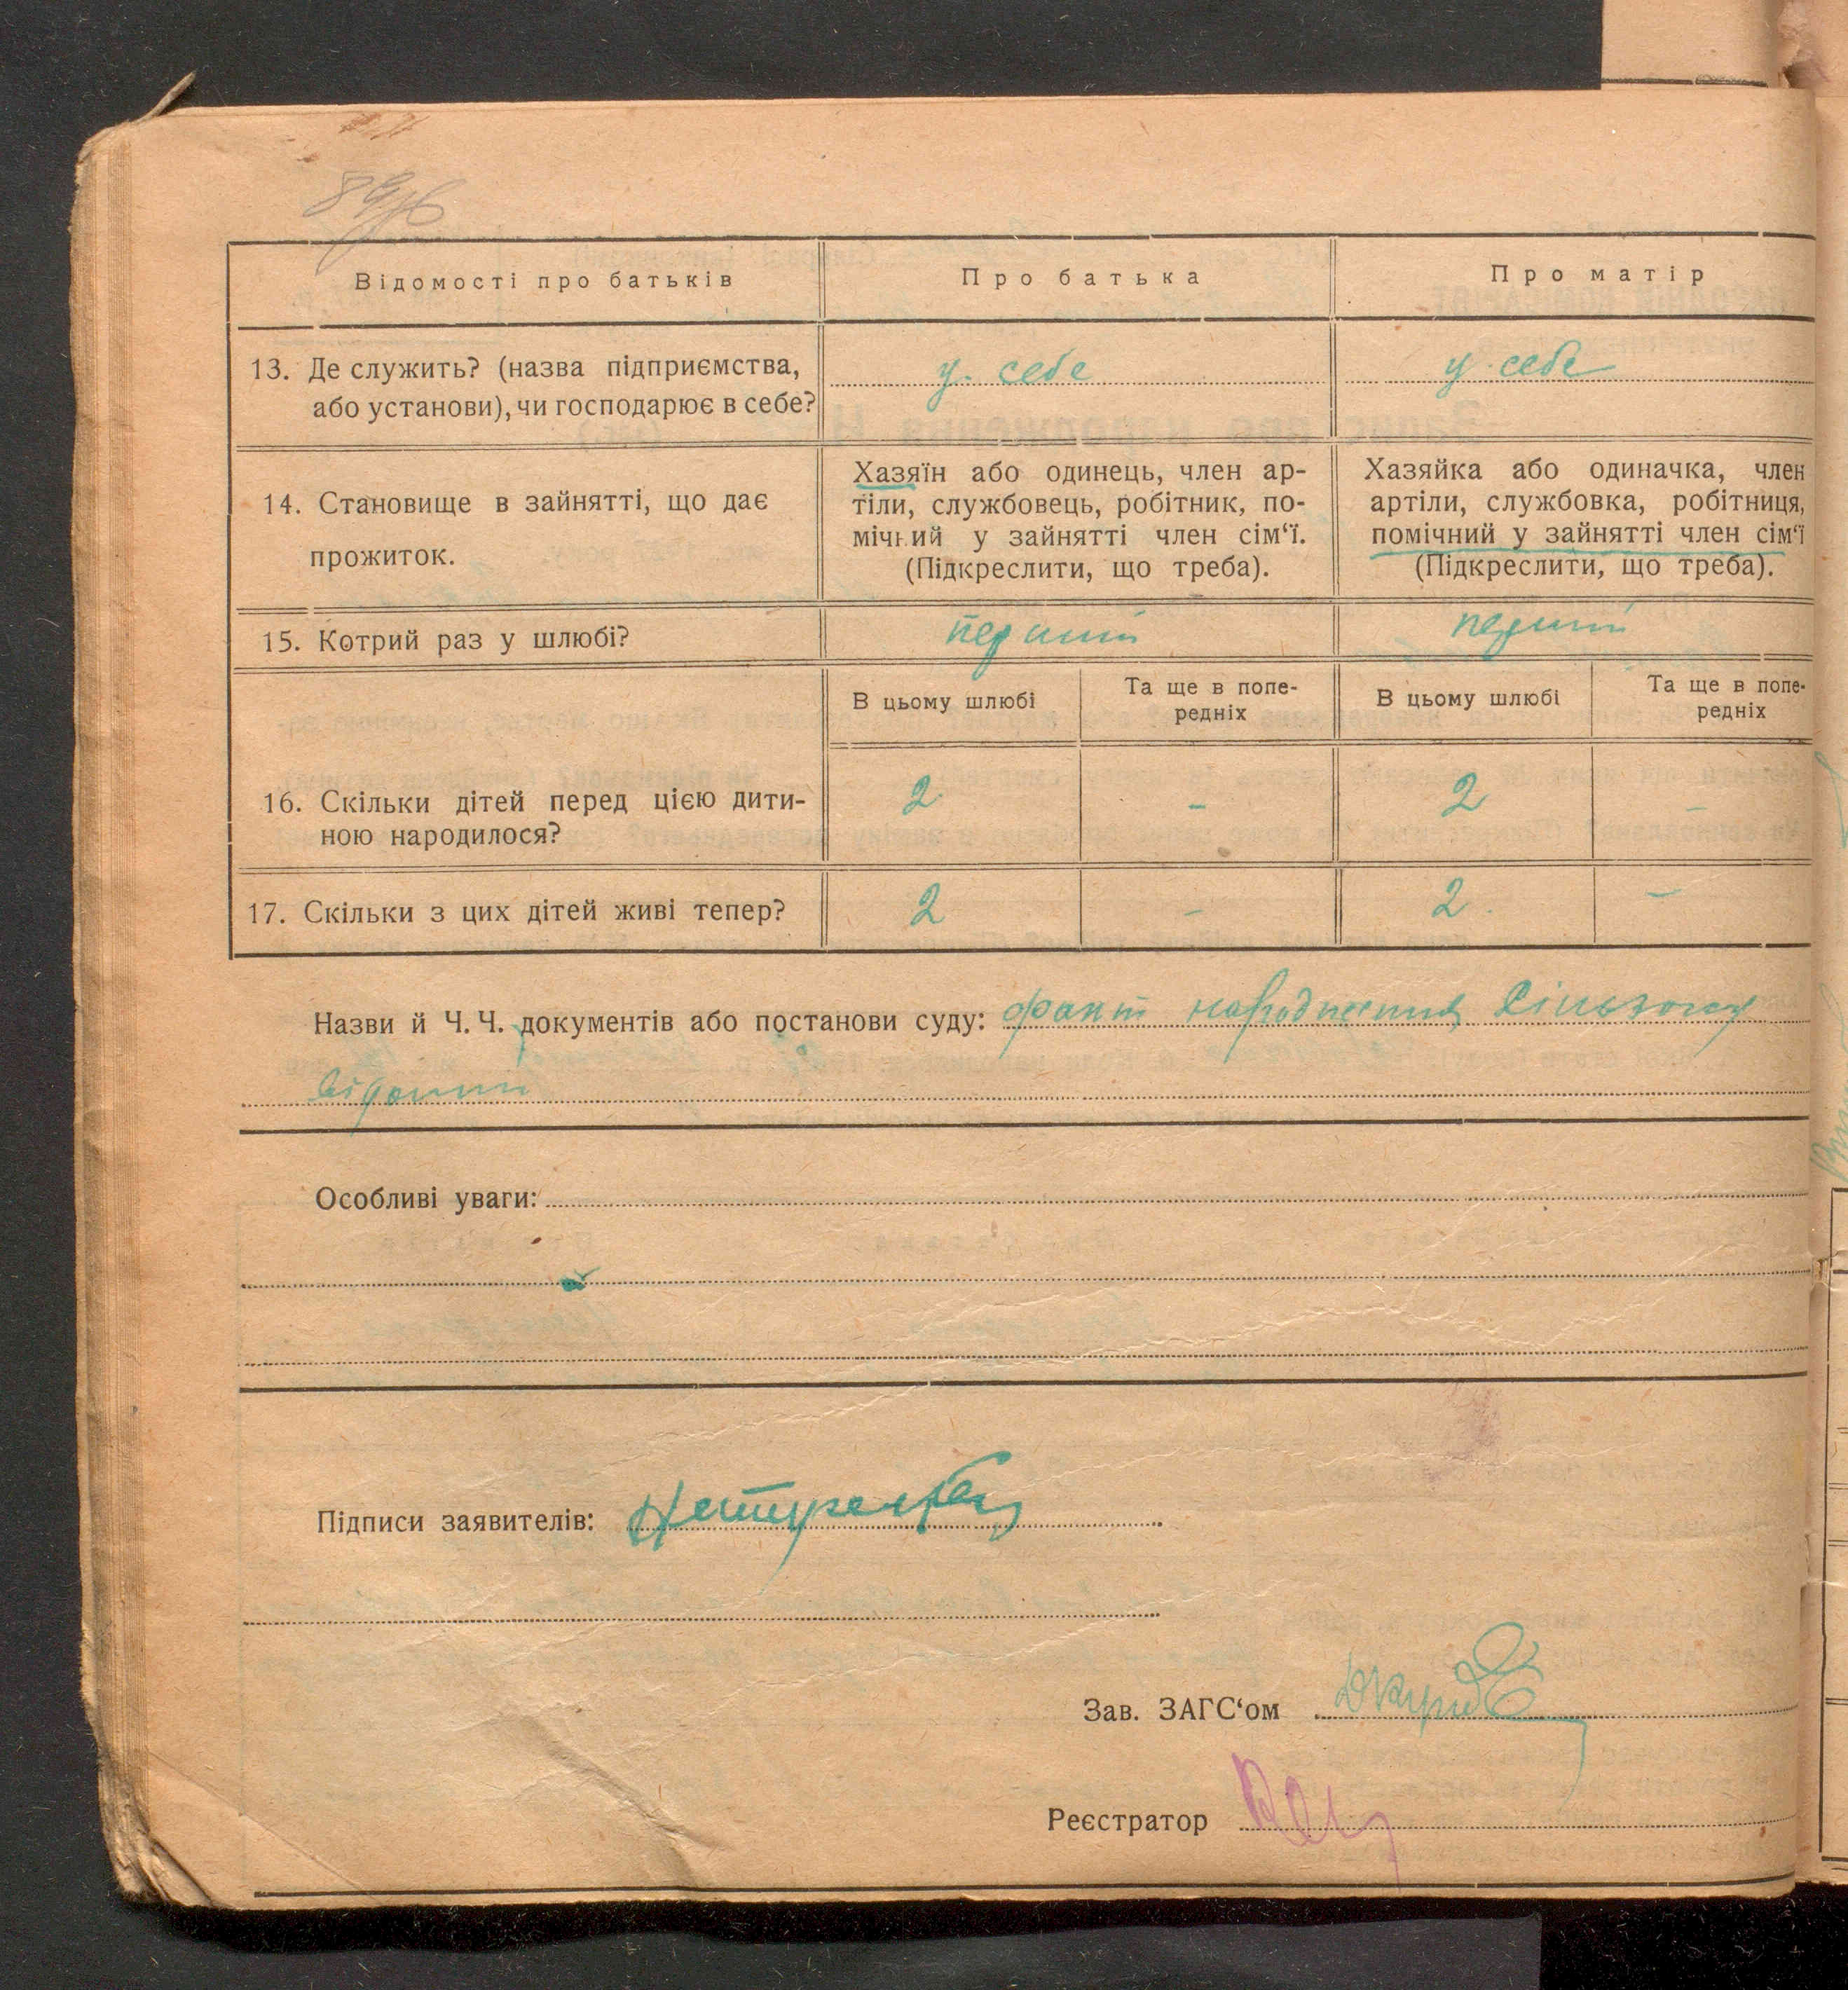 Відомості про батьків
Про батька
Про матір
13. Де служить? (назва підприємства,
або установи), чи господарює в себе?
у себе
у себе
14. Становище в зайнятті, що дає
прожиток.
Хазяїн або одинець, член ар-
тіли, службовець, робітник, по-
мічний у зайнятті член сім‘ї.
(Підкреслити, що треба).
Хазяйка або одиначка, член
артіли, службовка, робітниця,
помічний у зайнятті член сім‘ї
(Підкреслити, що треба).
15. Котрий раз у шлюбі?
перший
перший
В цьому шлюбі
Та ще в попе-
редніх
В цьому шлюбі
Та ще в попе-
редніх
16. Скільки дітей перед цією дити-
ною народилося?
2
-
2
-
17. Скільки з цих дітей живі тепер?
2
-
2.
-
Назви й Ч. Ч. документів або постанови суду: факт народження
Особливі уваги:
Підписи заявителів:
Зав. ЗАГС‘ом
Реєстратор